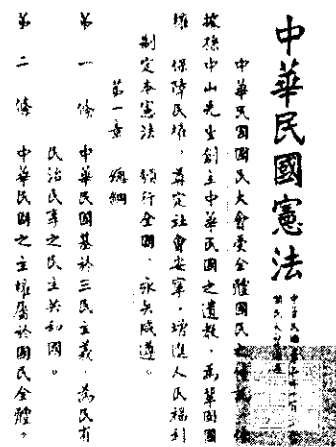 中華民國憲法
中華民國
國民大會
中華民國國民大會受全體國民之付託，依
據孫中山先生創立中華民國之遺教，為鞏固國
權，保障民權，奠定社會安寧，增進人民福利
制定本憲法　頒行全國，永矢咸遵。
第一章　總綱
第一條　中華民國基於三民主義，為民有
民治民享之民主共和國。
第二條　中華民國之主權屬於國民全體。